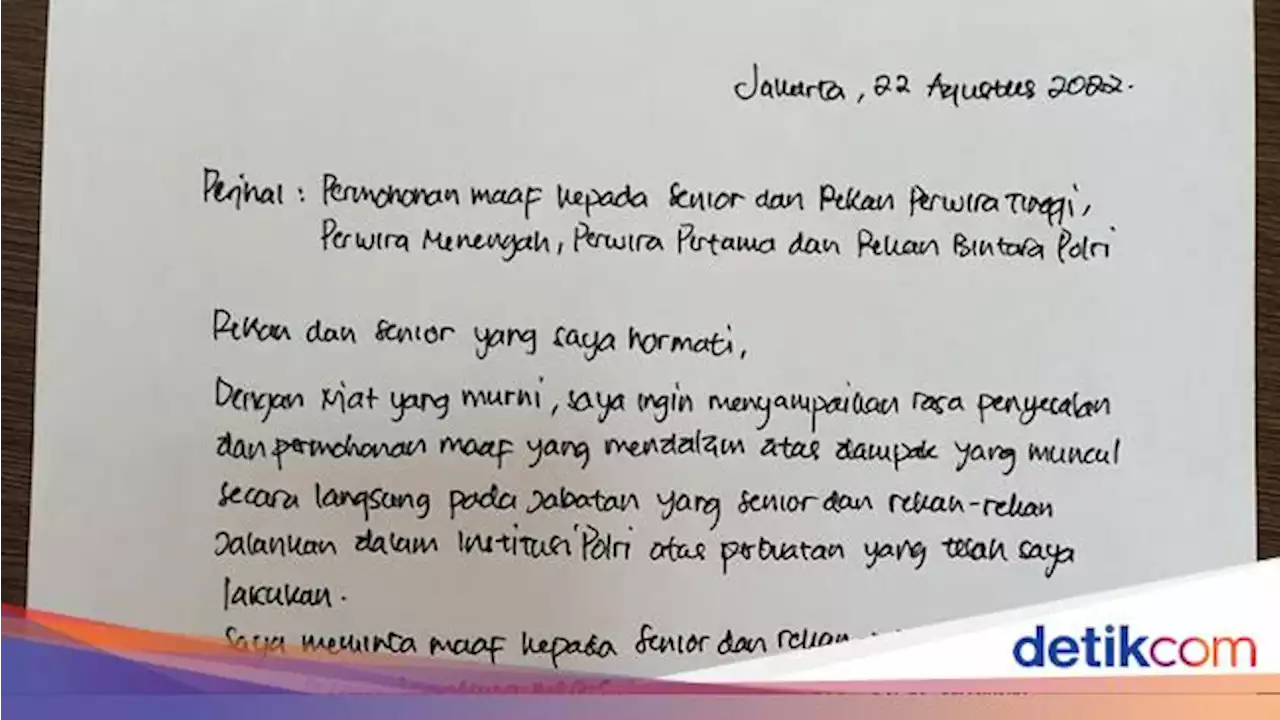 Jakarta, 22 Agustus 2022.
Perihal : Permohonan maaf kepada Senior dan Rekan Perwira Tinggi,
Perwira Menengah, Perwira Pertama dan Rekan Bintara Polri
Rekan dan Senior yang saya hormati,
Dengan niat yang murni, saya ingin menyampaikan rasa penyesalan
dan permohonan maaf yang mendalam atas dampak yang muncul
secara langsung pada jabatan yang senior dan rekan-rekan
jalankan dalam institusi Polri atas perbuatan yang telah saya
lakukan.
Saya meminta maaf kepada senior dan rekan
detikcom